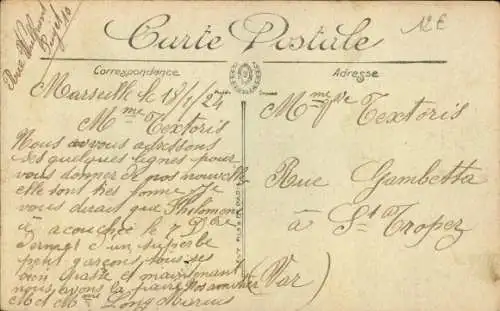 Rue Wulfram
Puget 10
12 E
Carte Postale
Correspondance
Adresse
Marseille le 18/1/24
Mme Textoris
Nous vous adressons
ses quelques lignes pour
vous donner de nos nouvelle
elle sont très bonne Je
vous dirait que Philomène
a acouchée le 7 Dbre
dernier d'un superbe
petit garçons, tous se
bien
et maintenant
nous avons la
Nos amitier
M et Mme Long Marius
Mme Vve Textoris
Rue Gambetta
à St Tropez
(Var)